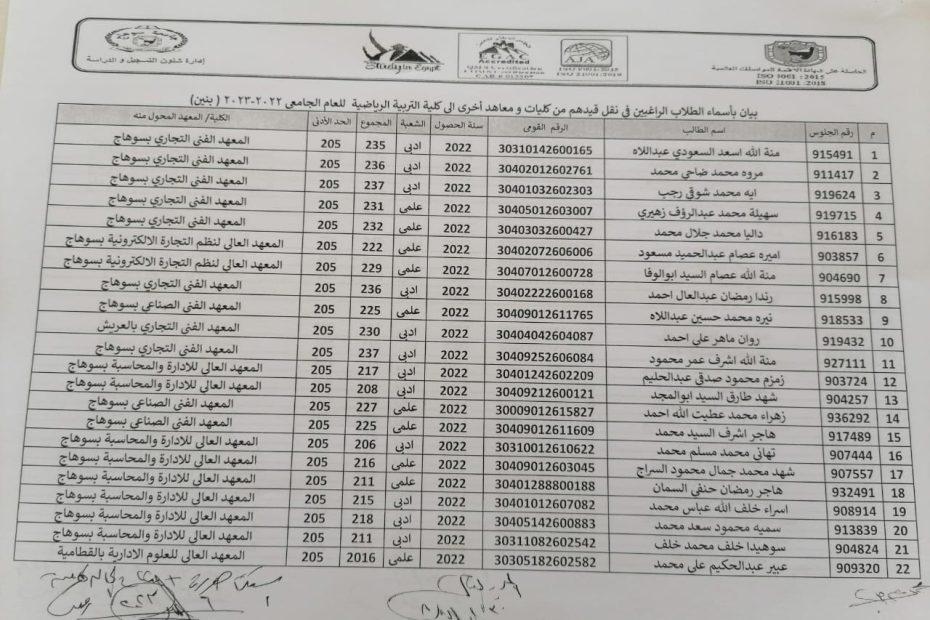 جامعة سوهاج
إدارة شئون التسجيل و الدراسة
Study in Egypt
EGAC
Accredited
AJA
ISO 9001:2015
ISO 21001:2018
الحاصلة على الشهادة
ISO 9001 :2015
ISO 21001 :2018
بيان بأسماء الطلاب الراغبين في نقل قيدهم من كليات و معاهد أخرى الى كلية التربية الرياضية للعام الجامعى ٢٠٢٢-٢٠٢٣ ( بنين)
م رقم الجلوس اسم الطالب الرقم القومى سنة الحصول الشعبة المجموع الحد الأدنى الكلية/ المعهد المحول منه
1 915491 منة الله اسعد السعودي عبداللاه 30310142600165 2022 ادبى 235 205 المعهد الفنى التجاري بسوهاج
2 911417 مروه محمد ضاحي محمد 30402012602761 2022 ادبى 236 205 المعهد الفنى التجاري بسوهاج
3 919624 ايه محمد شوقى رجب 30401032602303 2022 ادبى 237 205 المعهد الفنى التجاري بسوهاج
4 919715 سهيلة محمد عبدالرؤف زهيري 30405012603007 2022 علمى 231 205 المعهد الفنى التجاري بسوهاج
5 916183 داليا محمد جلال محمد 30403032600427 2022 علمى 232 205 المعهد الفنى التجاري بسوهاج
6 903857 اميره عصام عبدالحميد مسعود 30402072606006 2022 علمى 222 205 المعهد العالى لنظم التجارة الالكترونية بسوهاج
7 904690 منة الله عصام السيد ابوالوفا 30407012600728 2022 علمى 229 205 المعهد العالى لنظم التجارة الالكترونية بسوهاج
8 915998 رندا رمضان عبدالعال احمد 30402222600168 2022 ادبى 236 205 المعهد الفنى التجاري بسوهاج
9 918533 نيره محمد حسين عبداللاه 30409012611765 2022 علمى 225 205 المعهد الفنى الصناعى بسوهاج
10 919432 روان ماهر على احمد 30404042604087 2022 ادبى 230 205 المعهد الفنى التجاري بالعريش
11 927111 منة الله اشرف عمر محمود 30409252606084 2022 ادبى 237 205 المعهد الفنى التجاري بسوهاج
12 903724 زمزم محمود صدقى عبدالحليم 30401242602209 2022 ادبى 217 205 المعهد العالى للادارة والمحاسبة بسوهاج
13 904257 شهد طارق السيد ابوالمجد 30409212600121 2022 ادبى 208 205 المعهد العالى للادارة والمحاسبة بسوهاج
14 936292 زهراء محمد عطيت الله احمد 30009012615827 2022 علمى 227 205 المعهد الفنى الصناعى بسوهاج
15 917489 هاجر اشرف السيد محمد 30409012611609 2022 علمى 225 205 المعهد الفنى الصناعى بسوهاج
16 907444 تهانى محمد مسلم محمد 30310012610622 2022 ادبى 206 205 المعهد العالى للادارة والمحاسبة بسوهاج
17 907557 شهد محمد جمال محمود السراج 30409012603045 2022 علمى 216 205 المعهد العالى للادارة والمحاسبة بسوهاج
18 932491 هاجر رمضان حنفى السمان 30401288800188 2022 علمى 211 205 المعهد العالى للادارة والمحاسبة بسوهاج
19 908914 اسراء خلف الله عباس محمد 30401012607082 2022 ادبى 215 205 المعهد العالى للادارة والمحاسبة بسوهاج
20 913839 سميه محمود سعد محمد 30405142600883 2022 ادبى 218 205 المعهد العالى للادارة والمحاسبة بسوهاج
21 904824 سوهيدا خلف محمد خلف 30311082602542 2022 ادبى 211 205 المعهد العالى للادارة والمحاسبة بسوهاج
22 909320 عبير عبدالحكيم على محمد 30305182602582 2022 علمى 2016 205 المعهد العالى للعلوم الادارية بالقطامية